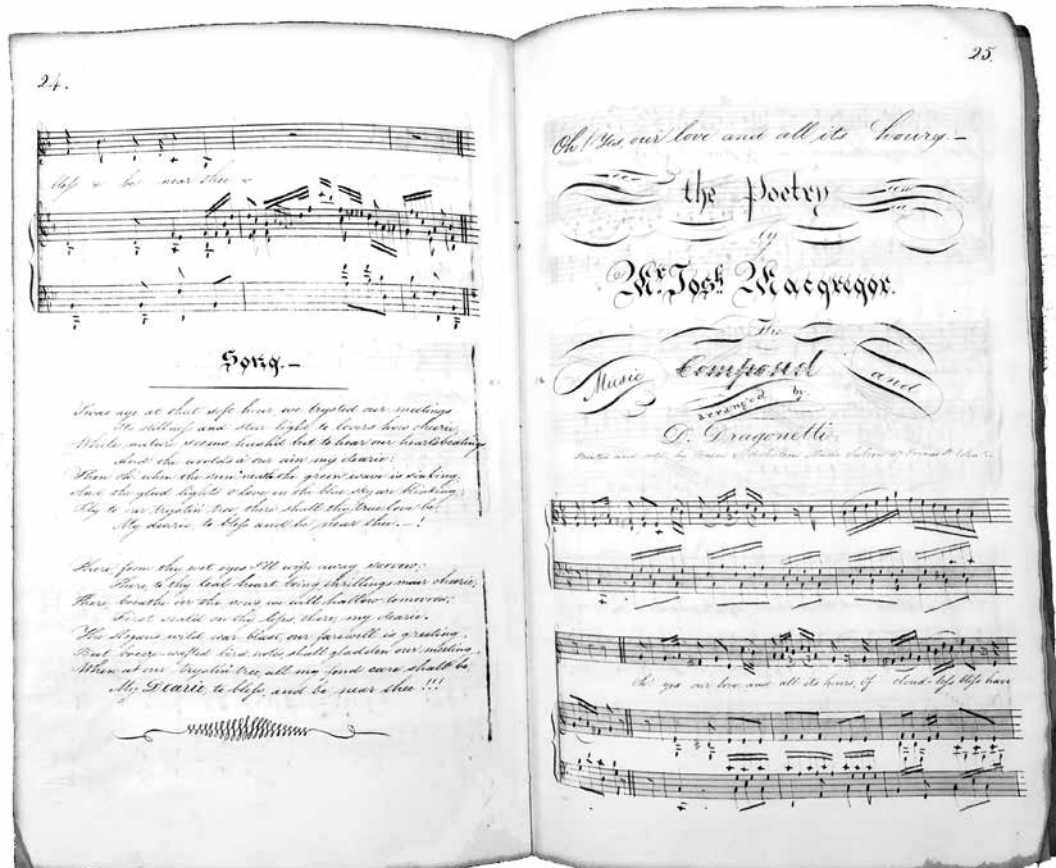 24.
bless & be near thee
Song.—
Twas aye at that soft hour, we trysted our meetings
Its stillness and star light to lovers how chearie,
While nature seems hush'd but to hear our hearts beatings
And the world's a' our ain my dearie:
Then oh when the sun 'neath the green wave is sinking,
And the glad lights o love in the blue sky are blinking;
Fly to our trystin tree, there shall thy true love be
My dearie, to bless and be, near thee. — !
There, from thy wet eyes I'll wipe away sorrow;
There, to thy leal heart bring thrillings mair chearie,
There, breathe o'er the vows we will hallow tomorrow,
First seal'd on thy lips, there, my dearie.
The slogans wild war blast, our farewell is greeting,
But breeze wafted bird notes shall gladden our meeting,
When at our trystin tree, all my fond care shall be
My Dearie, to bless, and be, near thee !!!
25.
Oh! Yes, our love and all its hours,—
the Poetry
by
Mr. Josh. Macgregor.
The
Music Composed and
arranged by
D. Dragonetti.
Printed and sold by
Oh! yes our love, and all its hours, Of cloud-less bliss have